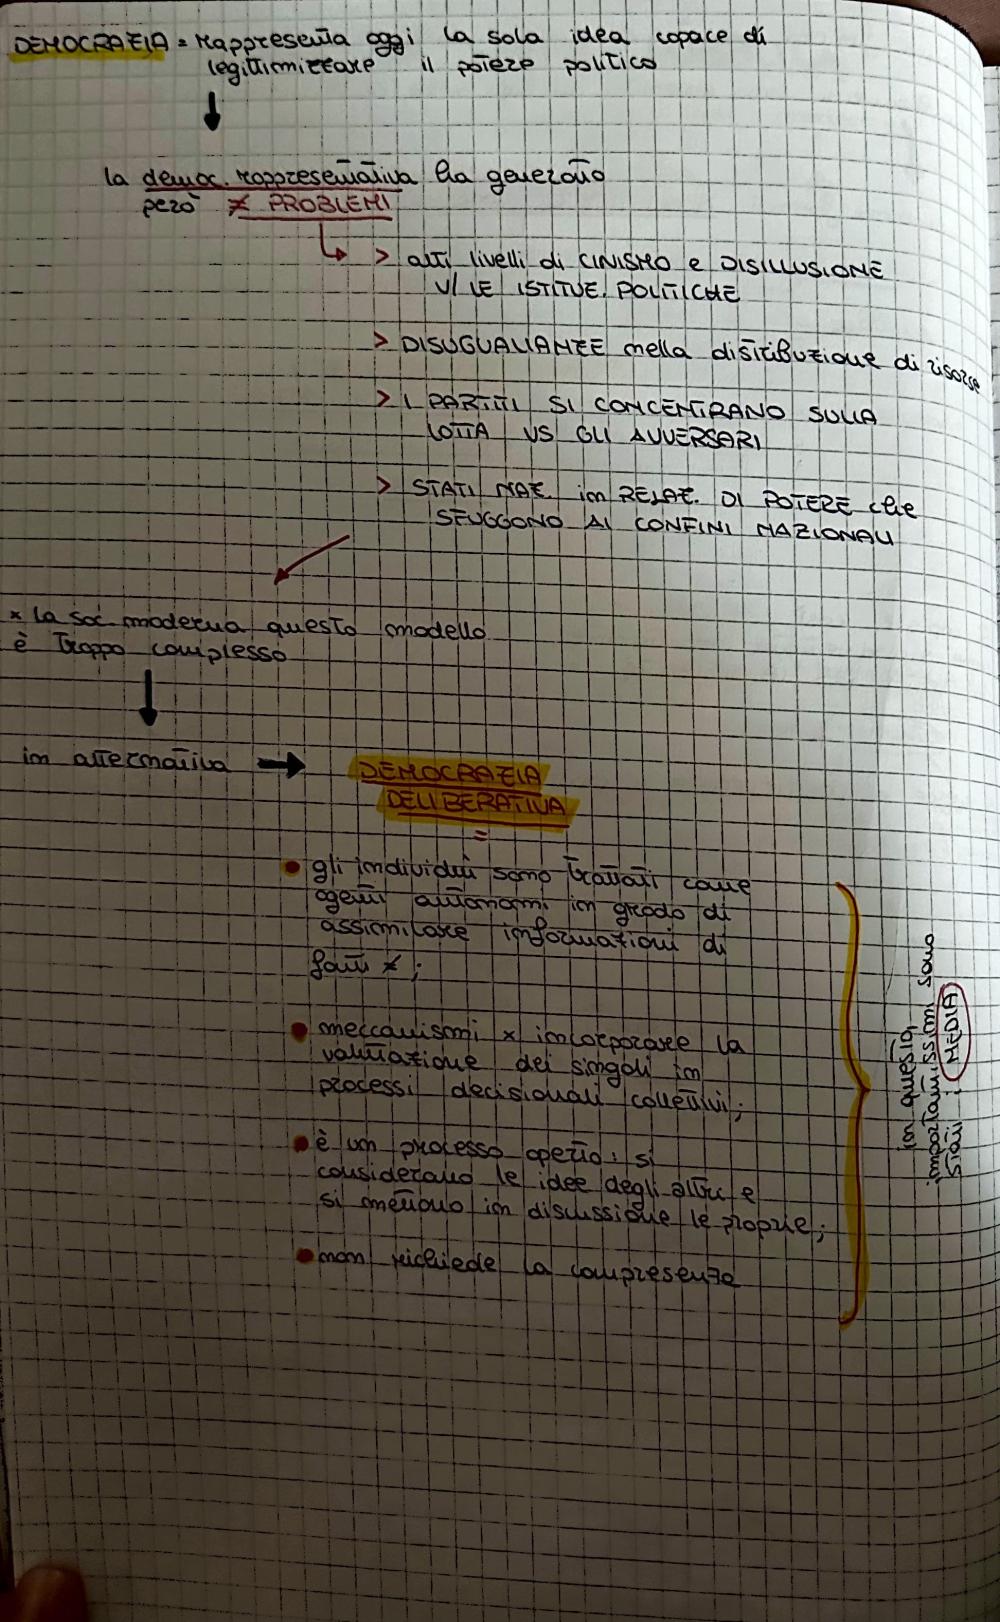 DEMOCRAZIA = rappresenta oggi la sola idea capace di
legittimizzare il potere politico
la democ. rappresentativa ha generato
però ≠ PROBLEMI
> alti livelli di CINISMO e DISILLUSIONE
V/ LE ISTITUZ. POLITICHE
> DISUGUALIANZE nella distribuzione di risorse
> I PARTITI SI CONCENTRANO SULLA
LOTTA VS GLI AVVERSARI
> STATI NAZ. in RELAZ. DI POTERE che
SFUGGONO AI CONFINI NAZIONALI
x la soc. moderna questo modello
è troppo complesso
in alternativa → DEMOCRAZIA
DELIBERATIVA
=
• gli individui sono trattati come
agenti autonomi in grado di
assimilare informazioni di
fonti ≠;
• meccanismi x incorporare la
valutazione dei singoli in
processi decisionali collettivi;
• è un processo aperto: si
considerano le idee degli altri e
si mettono in discussione le proprie;
• non richiede la compresenza
in questo,
importantissimi sono
stati i MEDIA